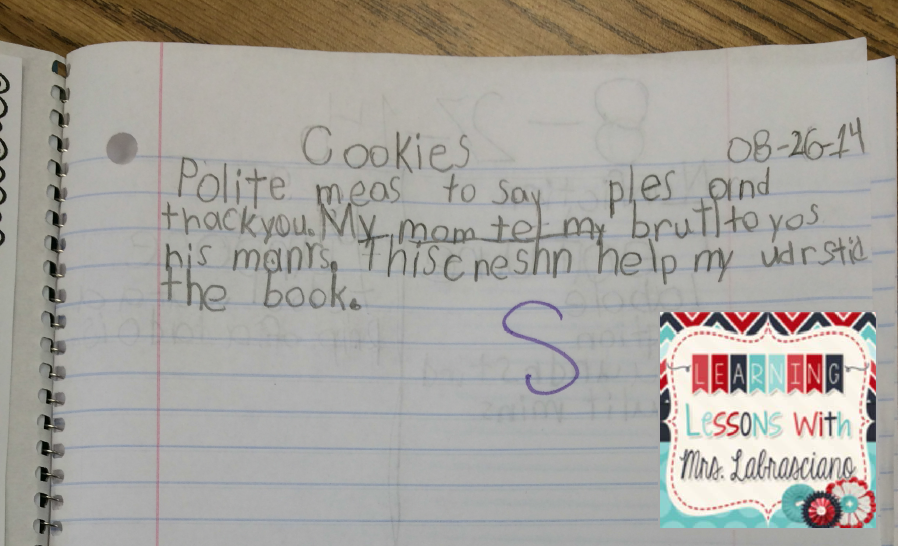 Cookies 08-26-14
Polite meas to say ples and
thackyou. My mom tel my brutl to yos
his manrs. This cneshn help my udrstid
the book.
S
LEARNING
Lessons With
Mrs. Labrasciano